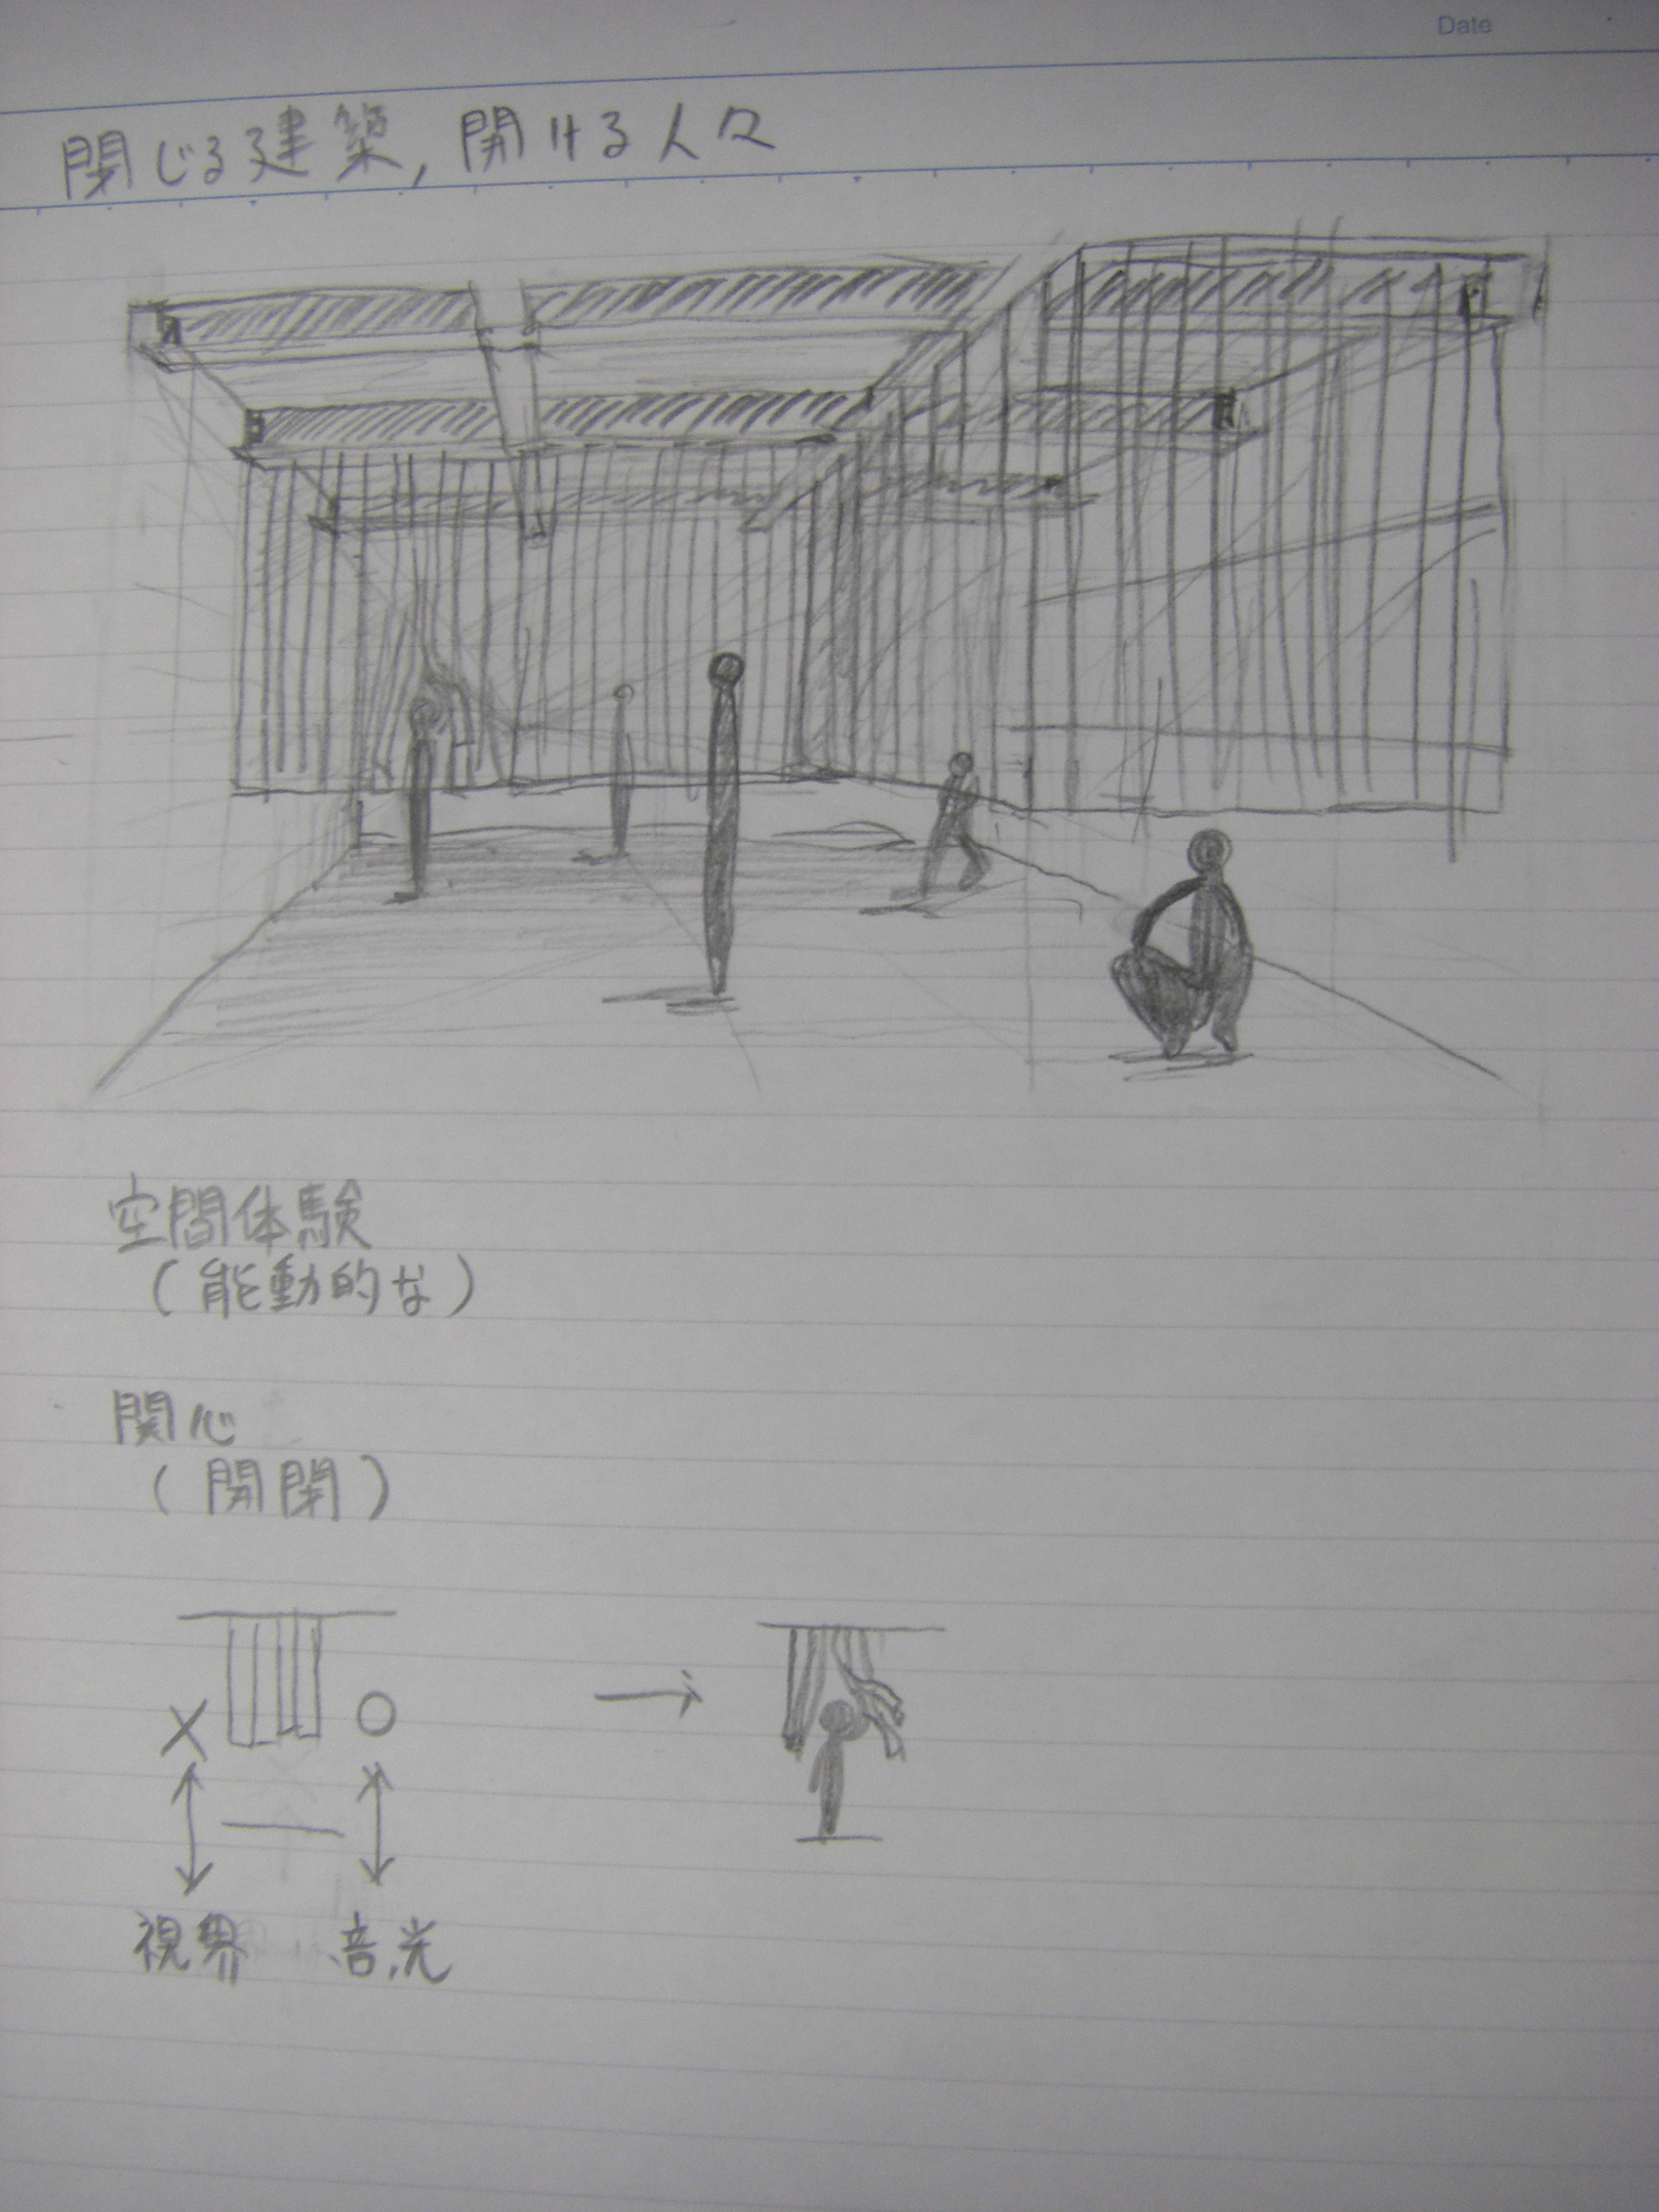 Date
閉じる建築,開ける人々
空間体験
(能動的な)
関心
(開閉)
× ○
視界 音,光